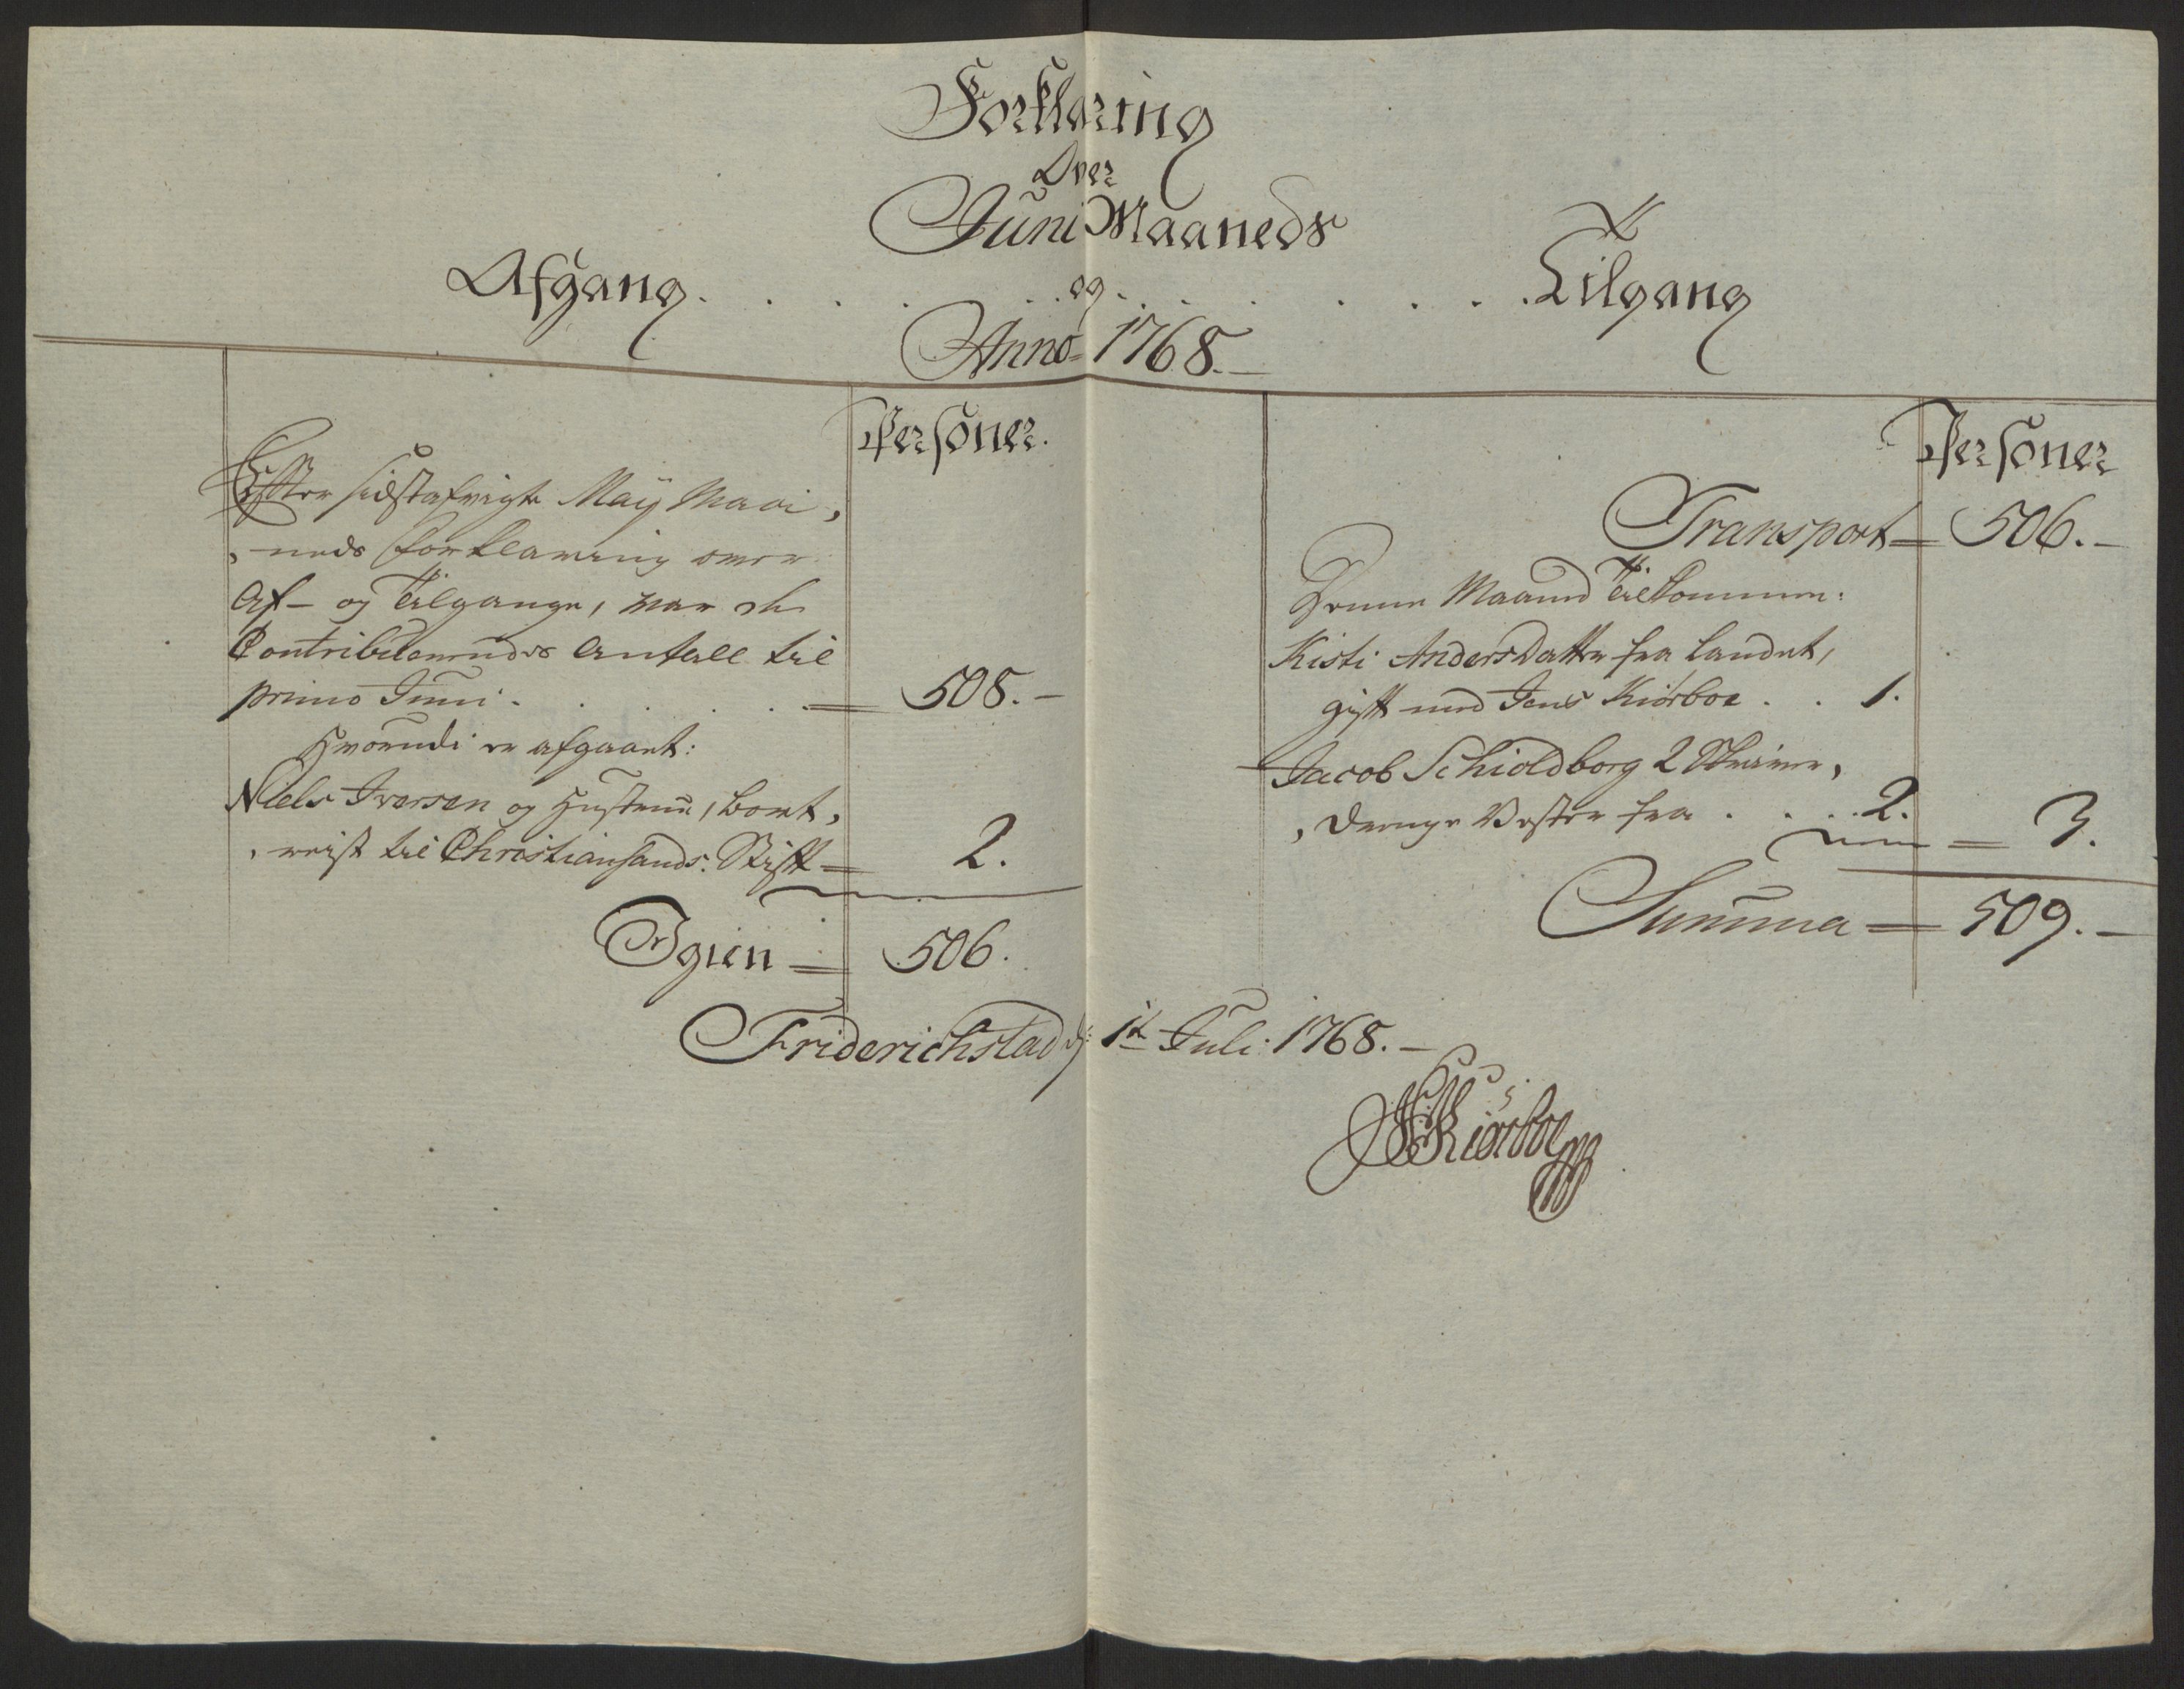 Forklaring
Over
Juni Maaneds
Afgang . . . . . og . . . . . . . Tilgang
Anno 1768.
Personer.
Efter sidstafvigte Maij Maa¬
neds forklaring over
Af- og Tilgange, var de
Contribuerendes Antall til
primo Juni . . . . . = 508.
Hvorudi er afgaaet:
Niels Iversen og Hustrue, bort,
reist til Christiansands: Stift = 2.
Igien = 506.
Personer
Transport = 506.
Denne Maaned Tilkommen:
Kisti Andersdatter fra Landet,
gift med Jens Kiørboe . . 1.
Jacob Schioldborg 2
Drenge Poster fra . . . . 2.
= 3.
Summa = 509.
Friderichstad d: 1te Juli: 1768.
Kiørboe